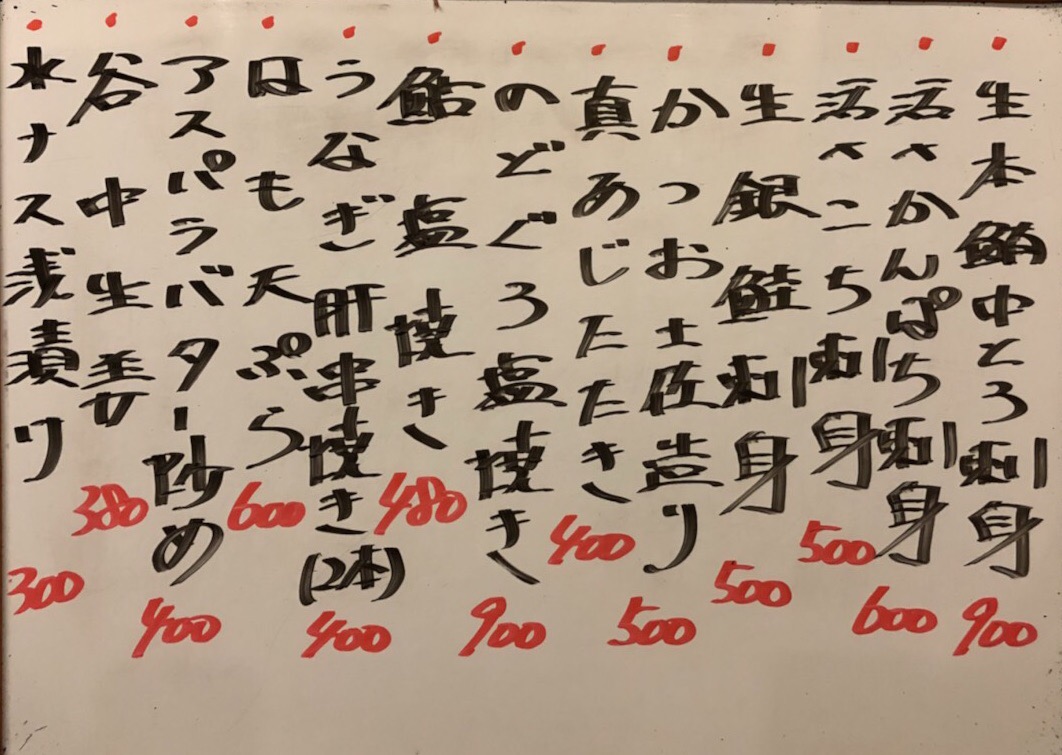 生本鮪中とろ刺身 900
活〆かんぱち刺身 600
活〆こち刺身 500
生銀鮭刺身 500
かつお土佐造り 500
真あじたたき 400
のどぐろ塩焼き 900
鮎塩焼き 480
うなぎ肝串焼き(2本) 400
はも天ぷら 600
アスパラバター炒め 400
谷中生姜 380
水ナス浅漬り 300